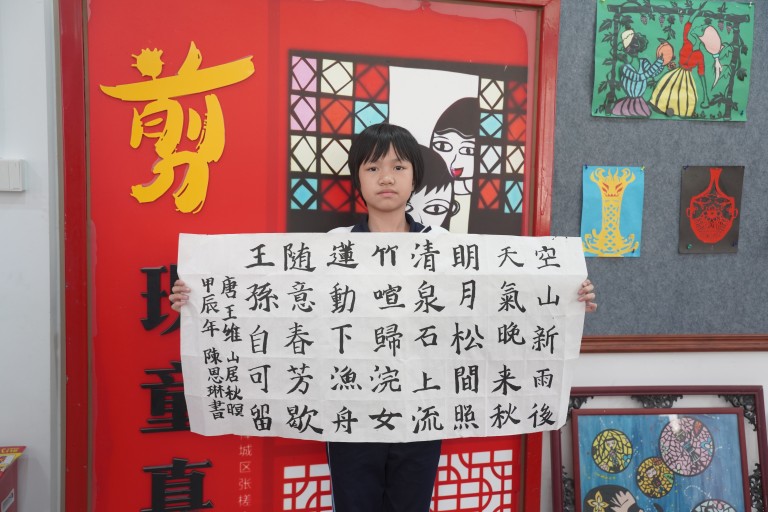 剪
童
真
空山新雨後
天氣晚来秋
明月松間照
清泉石上流
竹喧歸浣女
蓮動下漁舟
随意春芳歇
王孫自可留
唐王維山居秋暝
甲辰年 陳思琳書
城区张槎